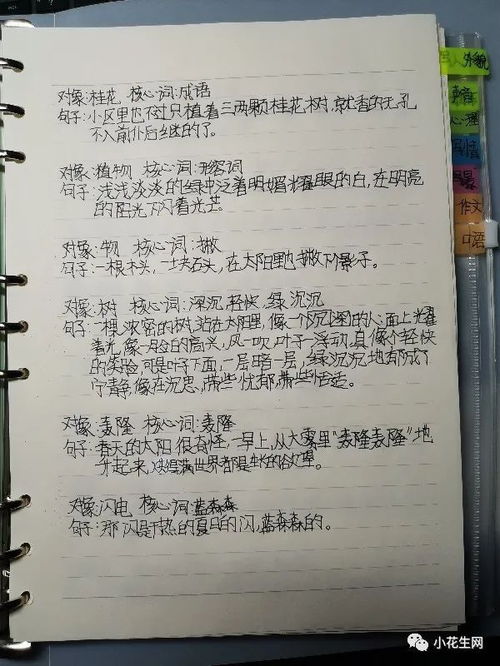 对象:桂花 核心词:成语
句子:小区里也不过只植着三两颗桂花树,就香的无孔
不入前仆后继的了。
对象:植物 核心词:形容词
句子:浅浅淡淡的绿中泛着明媚耀眼的白,在明亮
的阳光下闪着光芒。
对象:物 核心词:撇
句子:一根木头,一块石头,在太阳里也撇下影子。
对象:树 核心词:深沉,轻快,绿沉沉
句子:一棵浓密的树,站在太阳里,像一个沉图的人:面上耀
着光,像一脸的高兴,风一吹,叶子一浮动,真像个轻快
的笑脸,可是叶子下面,一层暗一层,绿沉沉地郁成了
宁静,像在沉思,带些忧郁,带些恬适。
对象:轰隆 核心词:轰隆
句子:春天的太阳很奇怪,一早上,从大雾里"轰隆轰隆"地
升起来,
对象:闪电 核心词:蓝森森
句子:那闪是热的夏日的闪,蓝森森的。
写人外貌
声音
心理
写情
写景
作文
口语
小花生网